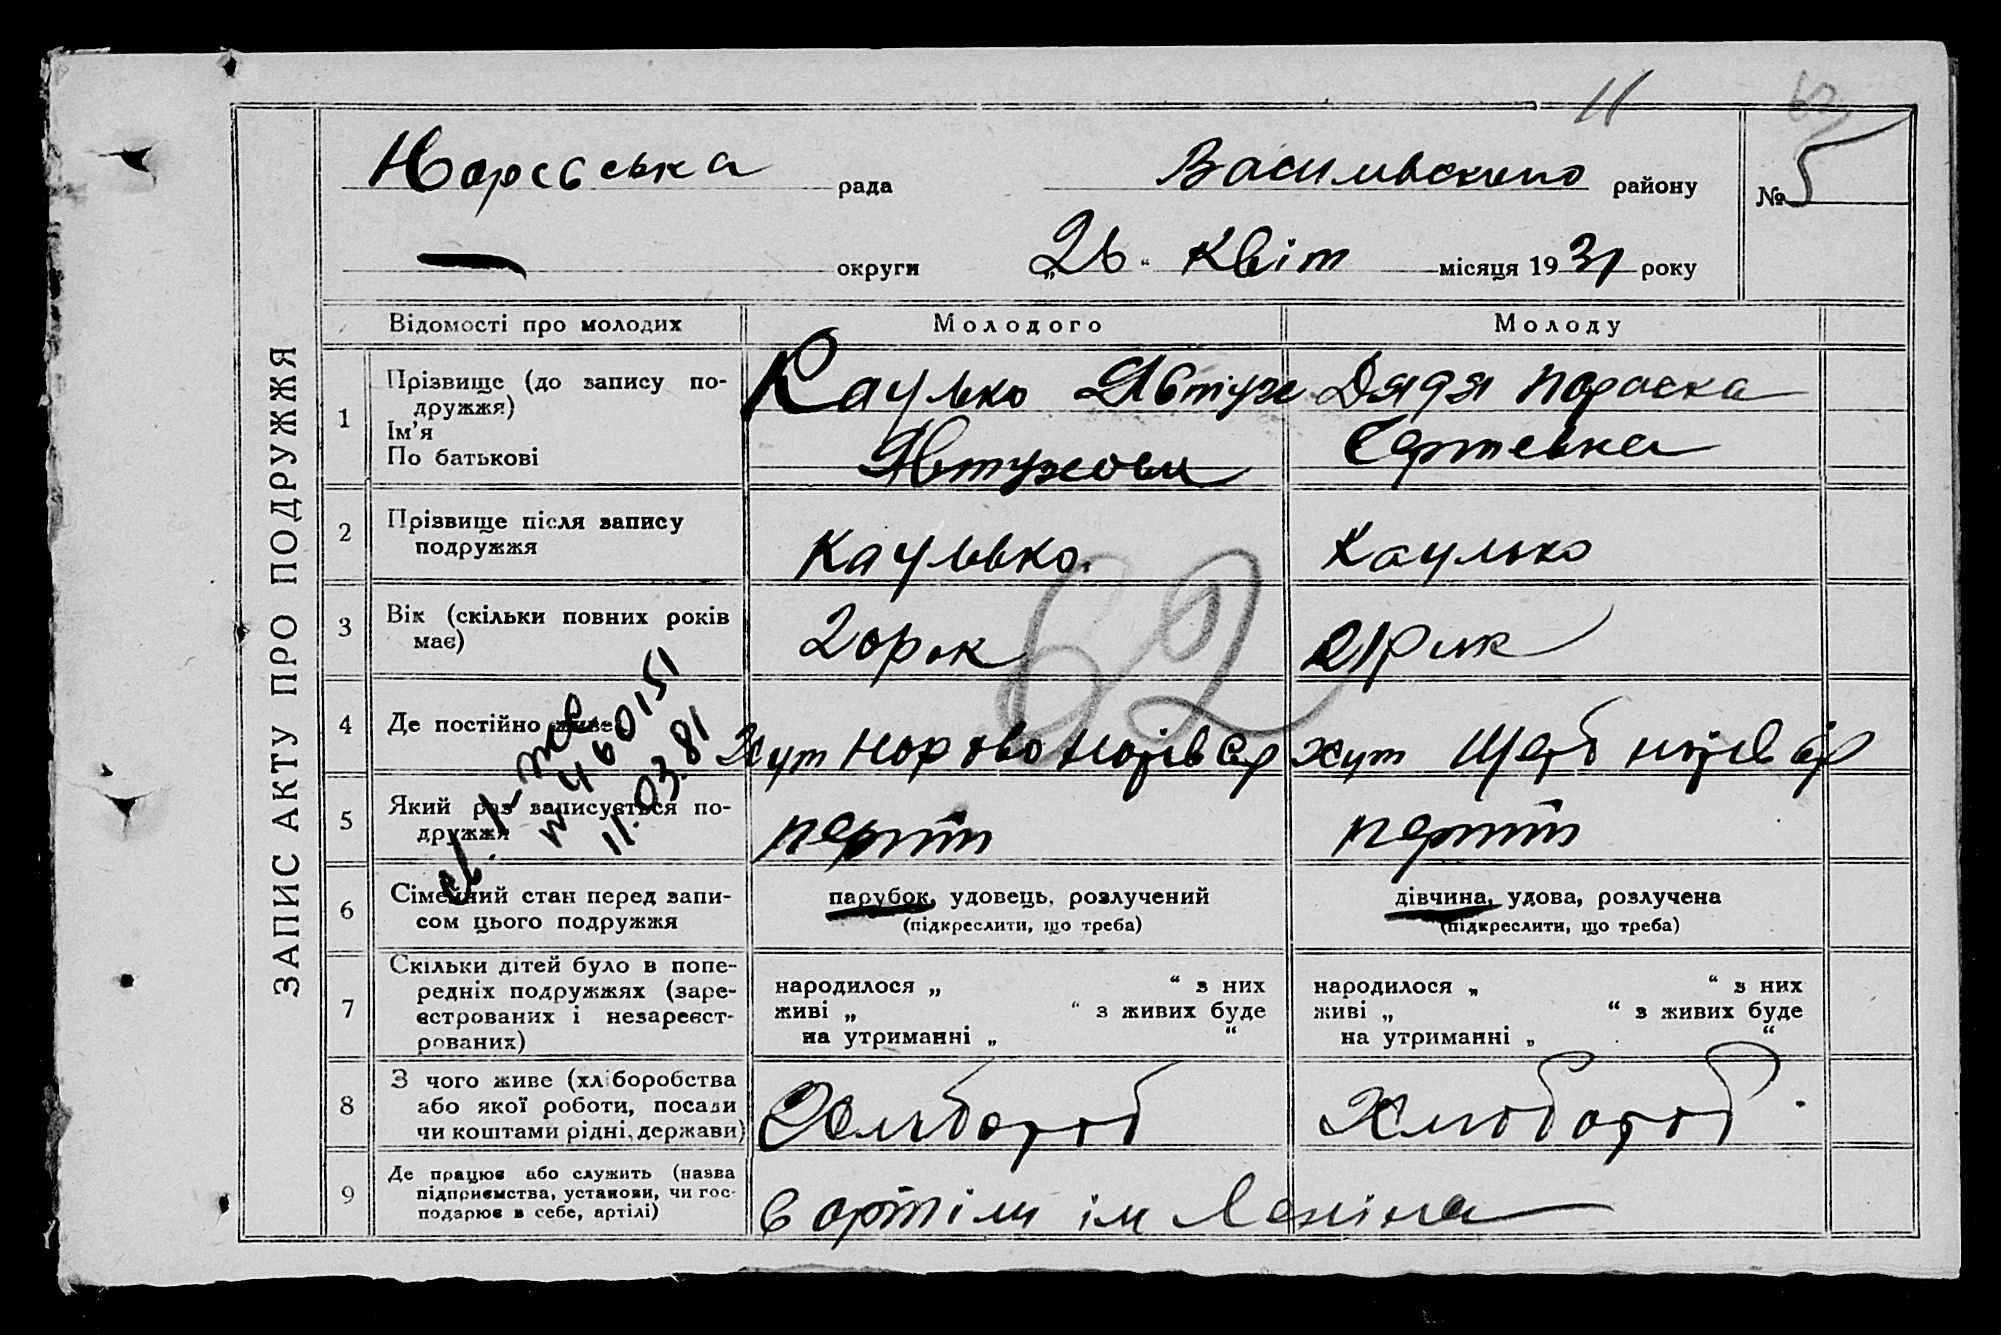 11 62
Норівська рада Васильвского району № 5
округи „26“ Квіт місяця 1931 року
ЗАПИС АКТУ ПРО ПОДРУЖЖЯ
Відомості про молодих Молодого Молоду
1 Прізвище (до запису по-
дружжя)
Ім'я
По батькові
Каулько Явтух
Явтухови
Дядя Пораска
Сергевна
2 Прізвище після запису
подружжя
Каулько. Каулько
3 Вік (скільки повних років
має)
20 рок 21 рик
62
4 Де постійно живе
Хут Хут
5 Який раз записується по-
дружжя
перший перший
№ 460151
11.03.81
6 Сімейний стан перед запи-
сом цього подружжя
парубок, удовець, розлучений
(підкреслити, що треба)
дівчина, удова, розлучена
(підкреслити, що треба)
7 Скільки дітей було в попе-
редніх подружжях (заре-
єстрованих і незареєст-
рованих)
народилося „ “ з них
живі „ “ з живих буде
на утриманні „ “
народилося „ “ з них
живі „ “ з живих буде
на утриманні „ “
8 З чого живе (хліборобства
або якої роботи, посади
чи коштами рідні, держави)
Хлибороб Хлибороб
9 Де працює або служить (назва
підприємства, установи, чи гос-
подарює в себе, артілі)
в артіли ім Леніна